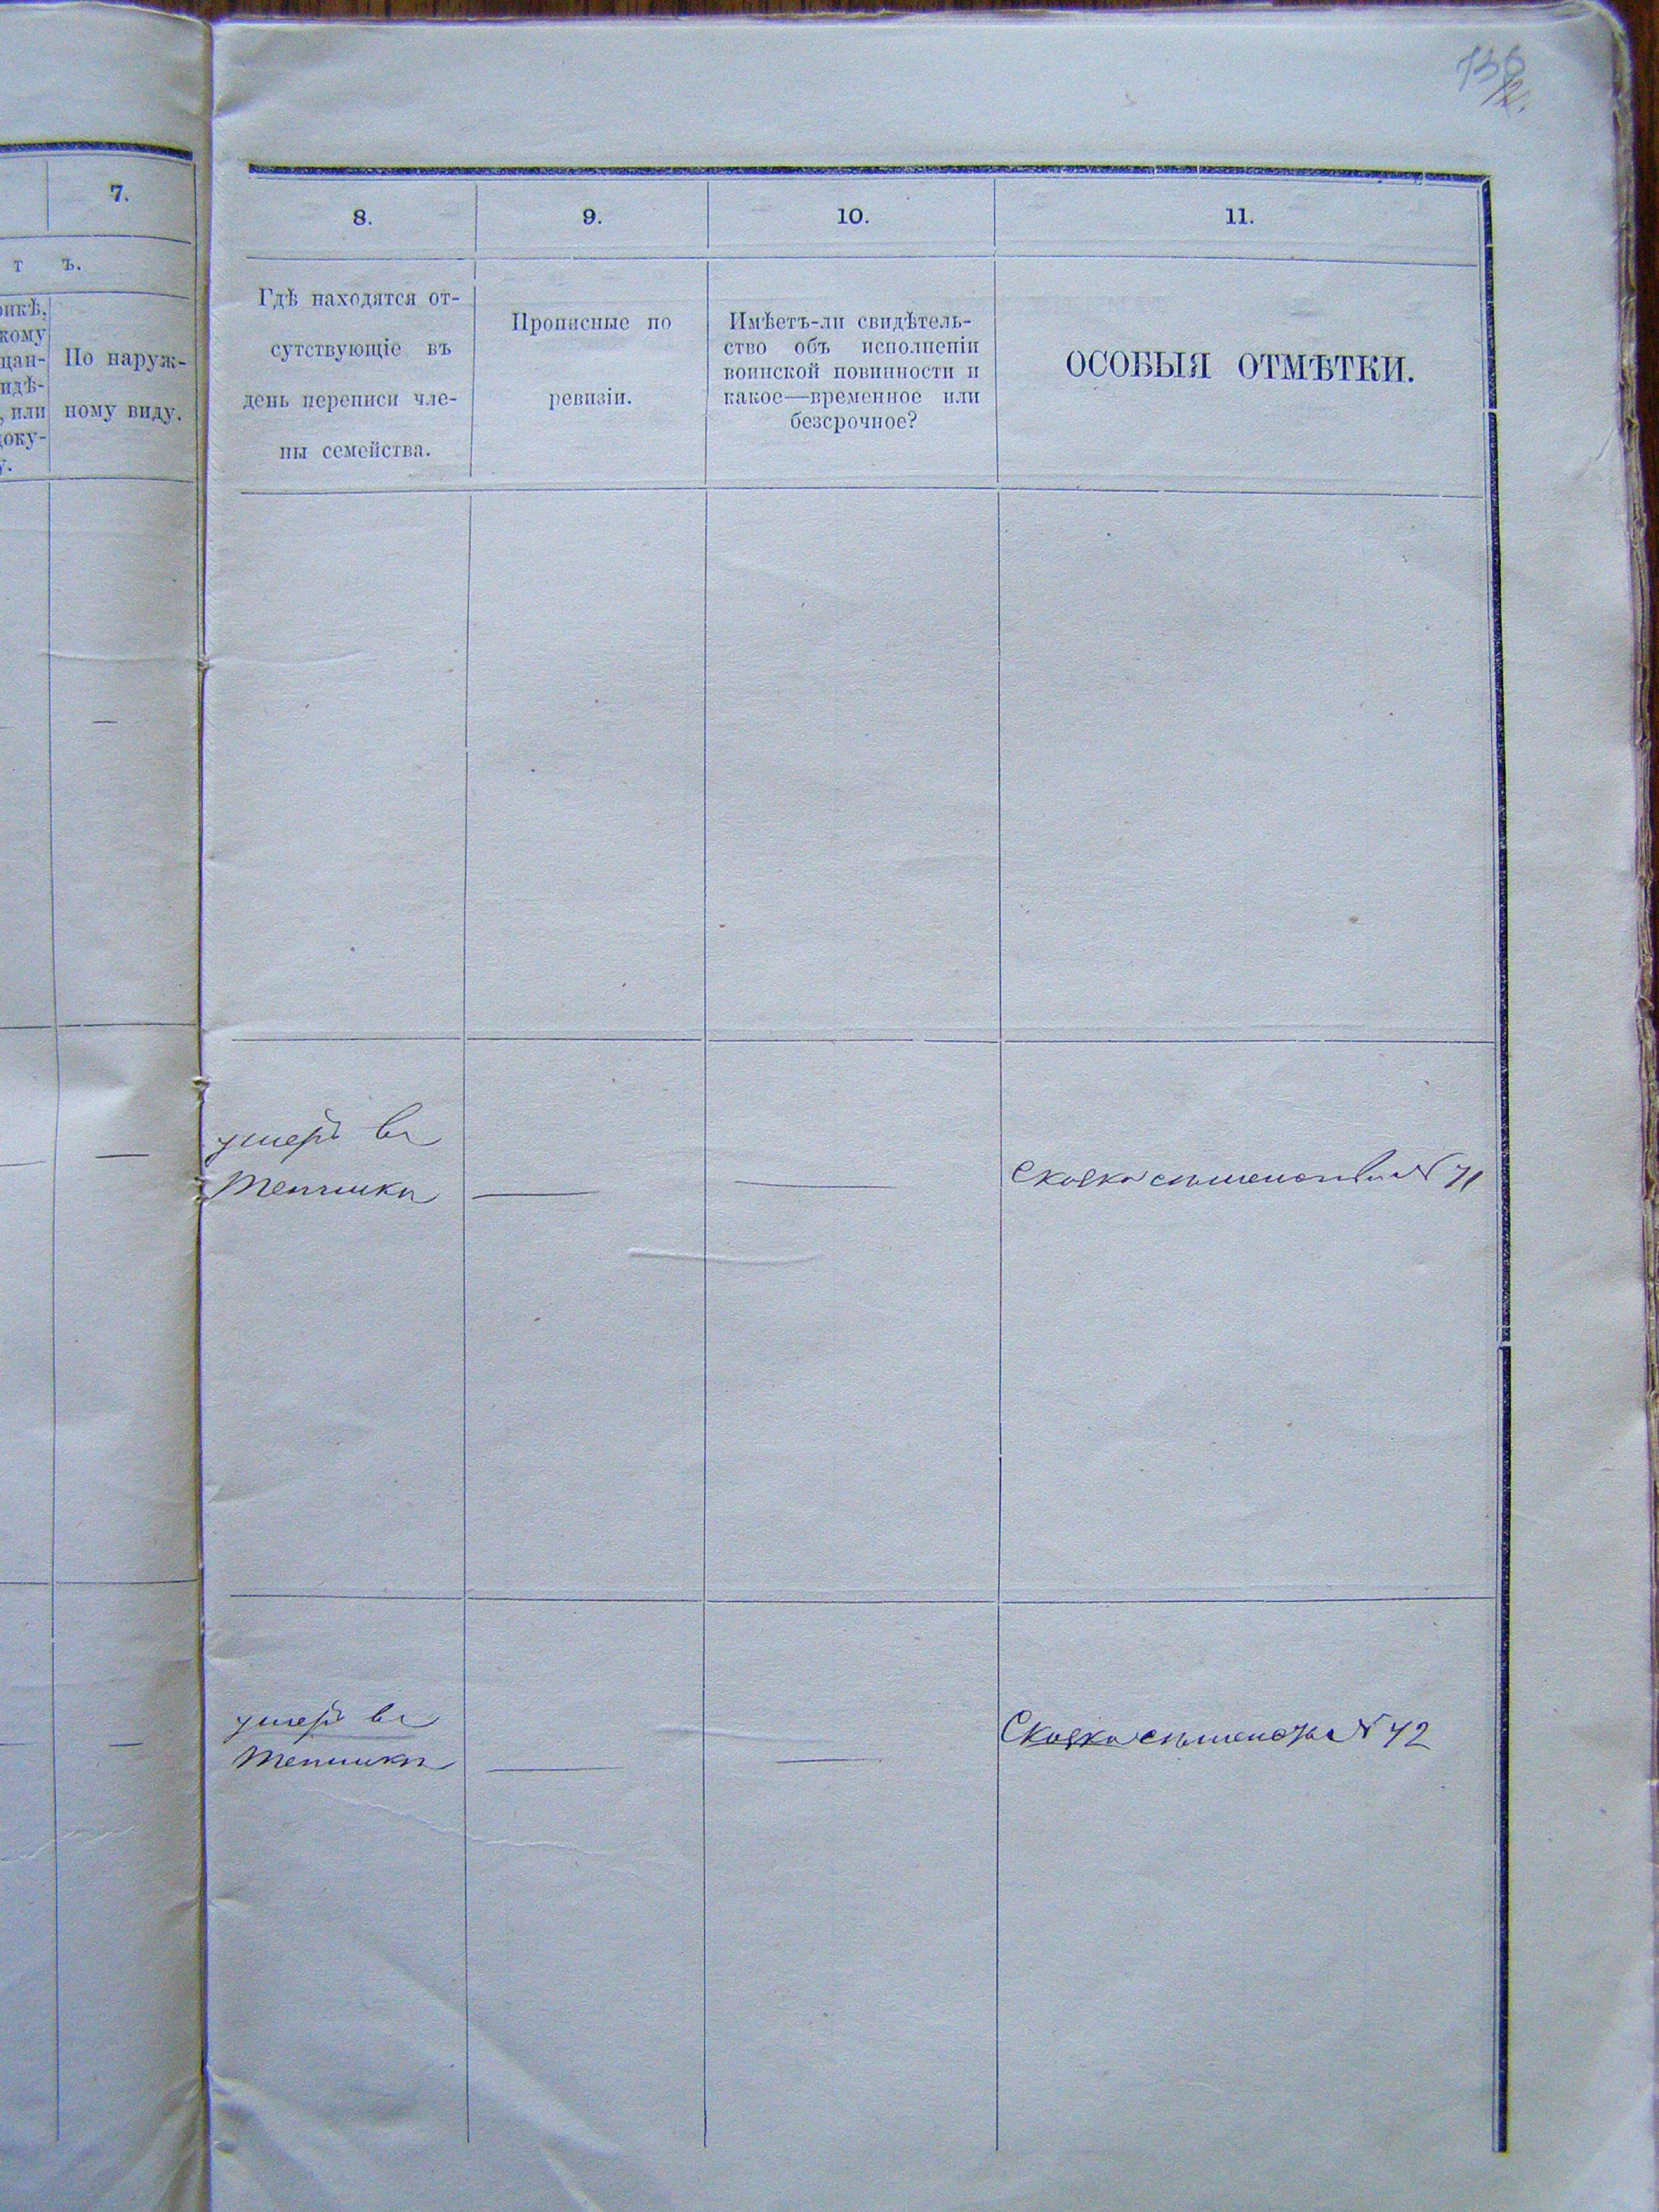 136
7.
т ъ.
рикѣ,
кому
цан-
идѣ-
, или
доку-
у.
По наруж-
ному виду.
8.
9.
10.
11.
Гдѣ находятся от-
сутствующіе въ
день переписи чле-
ны семейства.
Прописные по
ревизіи.
Имѣетъ-ли свидѣтель-
ство объ исполненіи
воинской повинности и
какое—временное или
безсрочное?
ОСОБЫЯ ОТМѢТКИ.
—
—
—
— — № 71
—
— — № 72